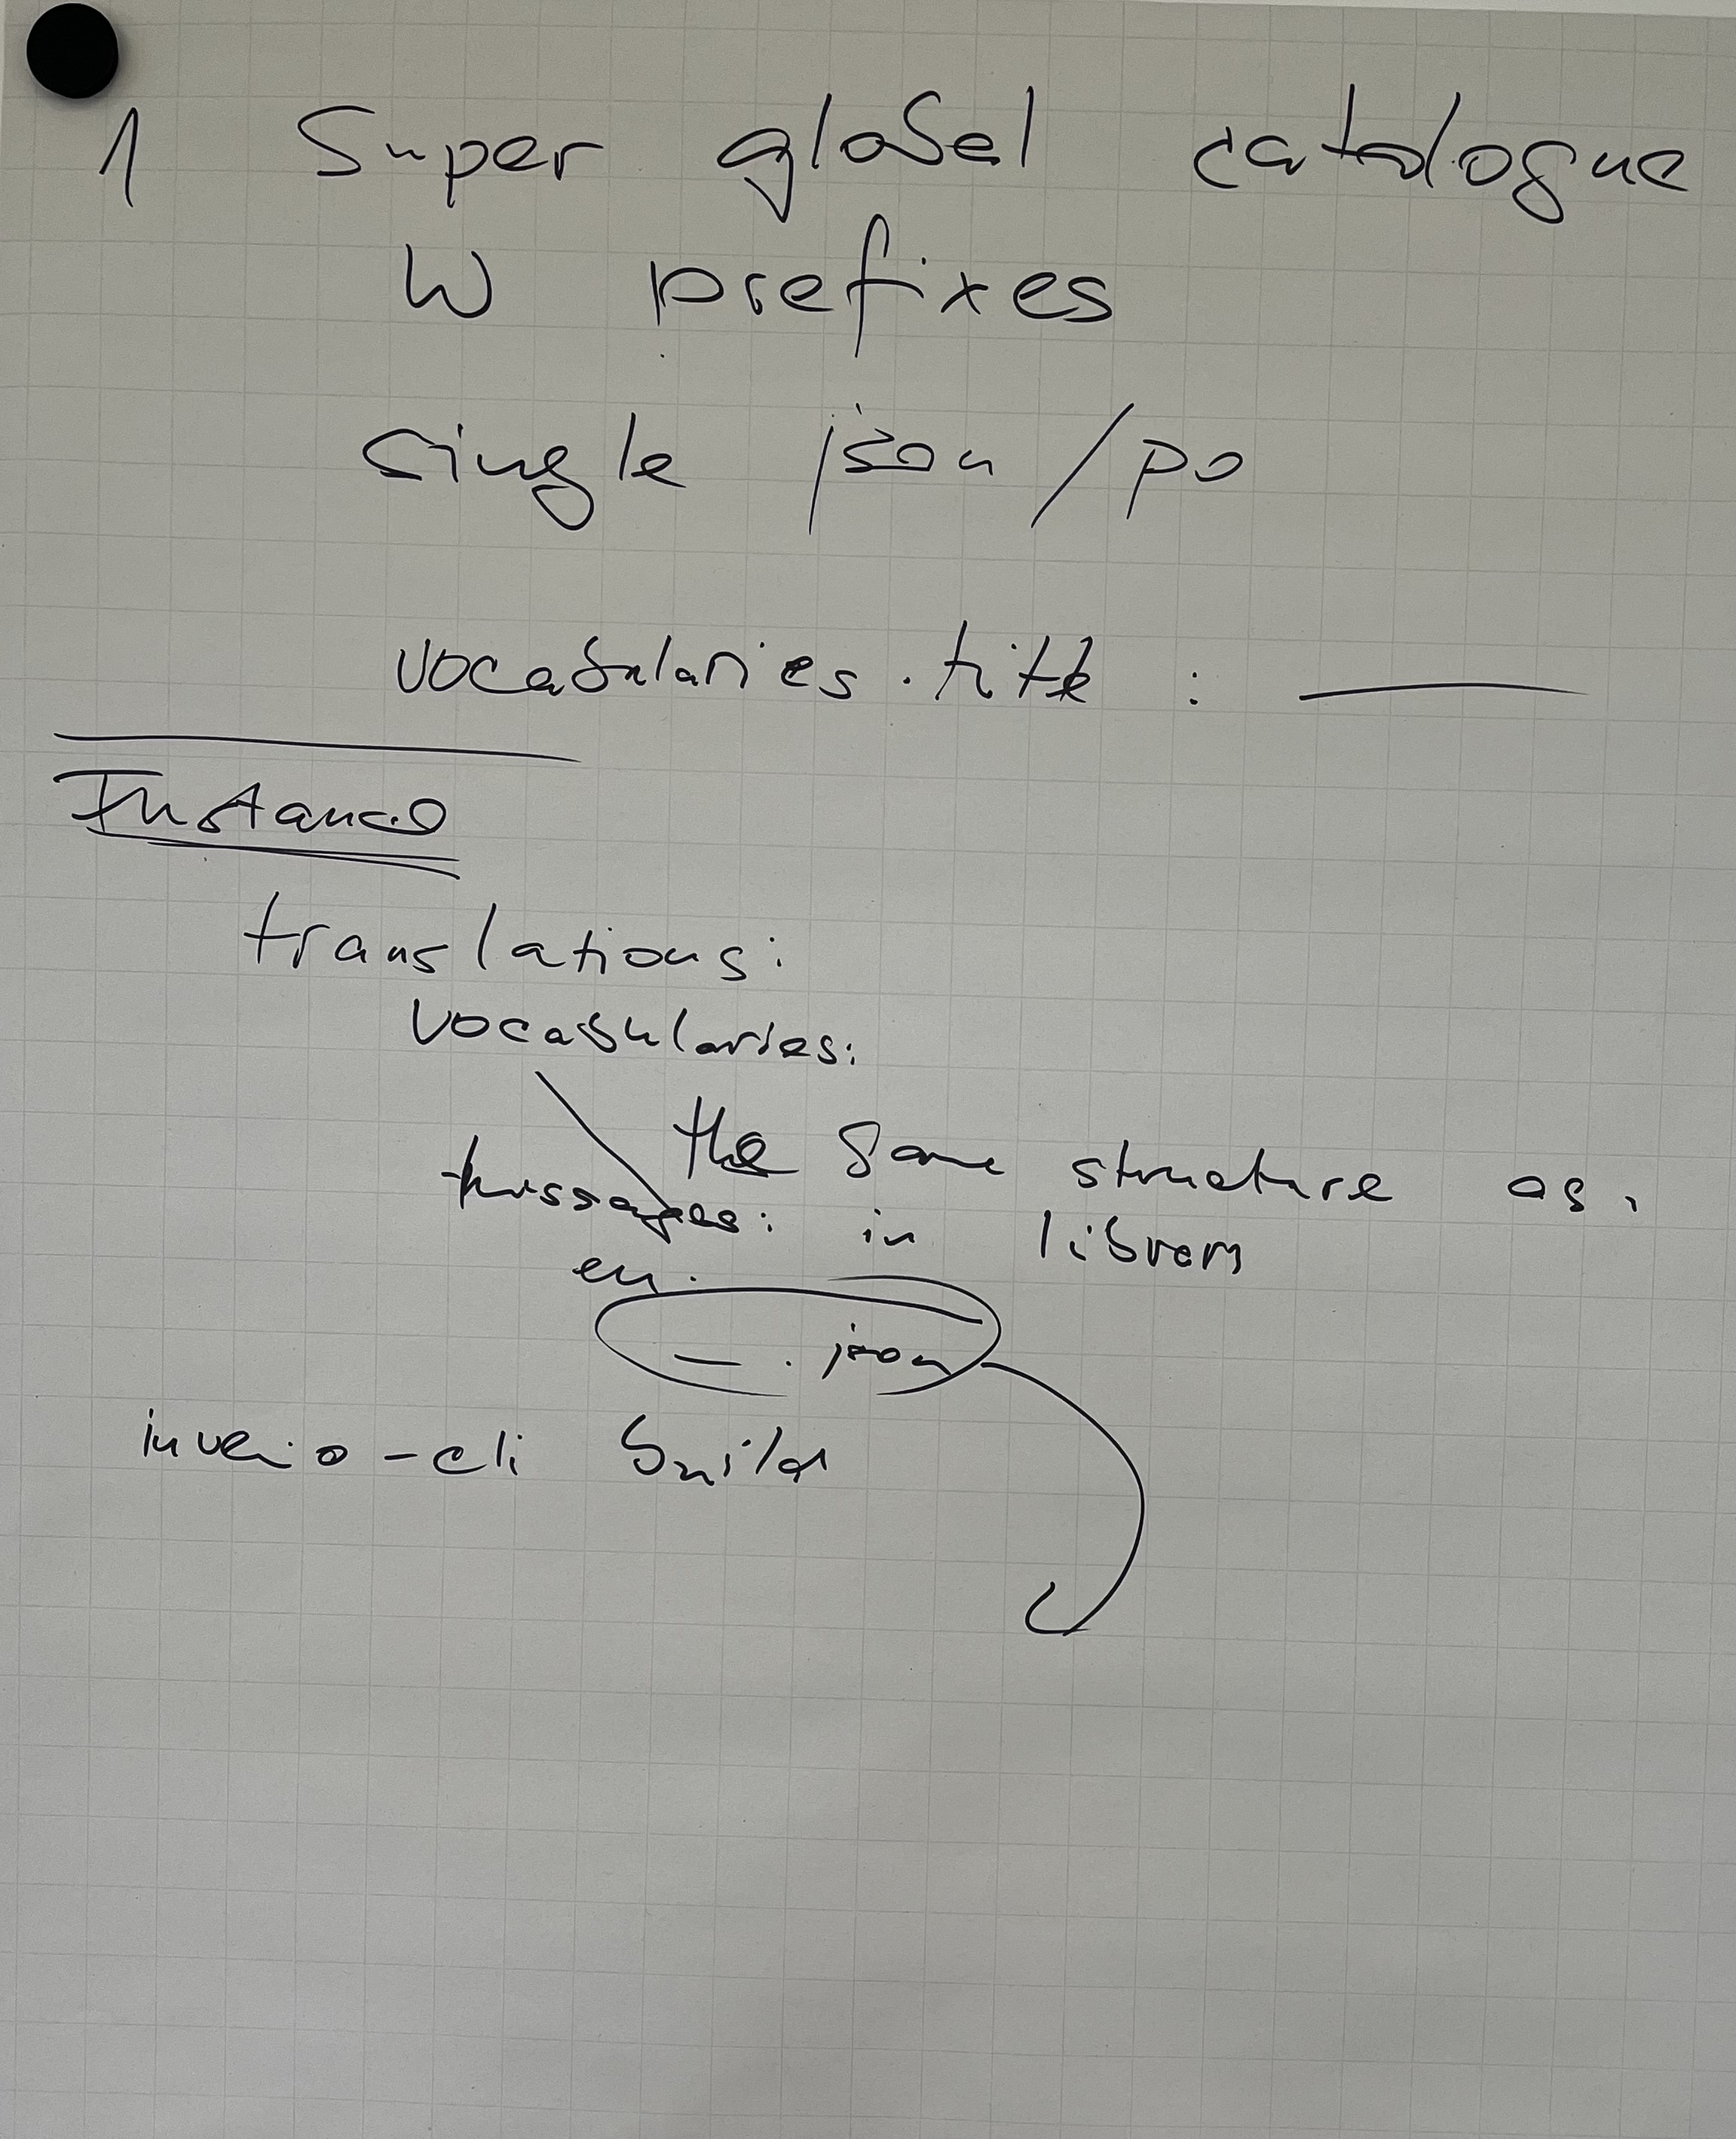 1 Super global catalogue
W prefixes
single json / po
vocabularies . title : —
Instance
translations:
vocabularies:
the same structure as.
messages: in library
en.
— . json
invenio-cli build